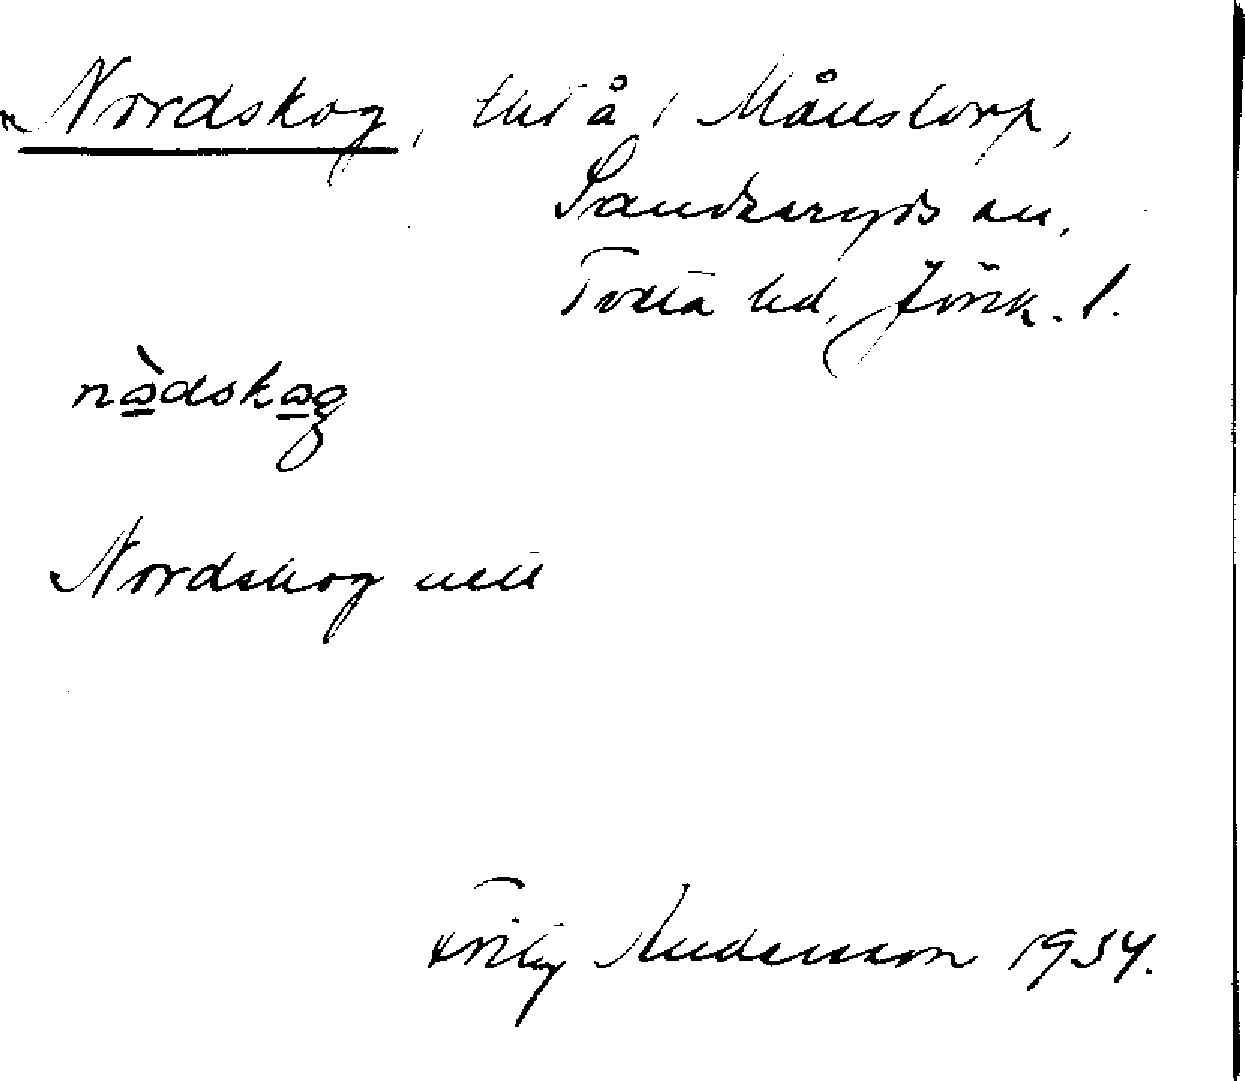 Nordskog, tht å Månstorp,
Sandseryds sn,
Tveta hd, Jönk. l.
nòdskog
Nordskog
Andersson 1934.